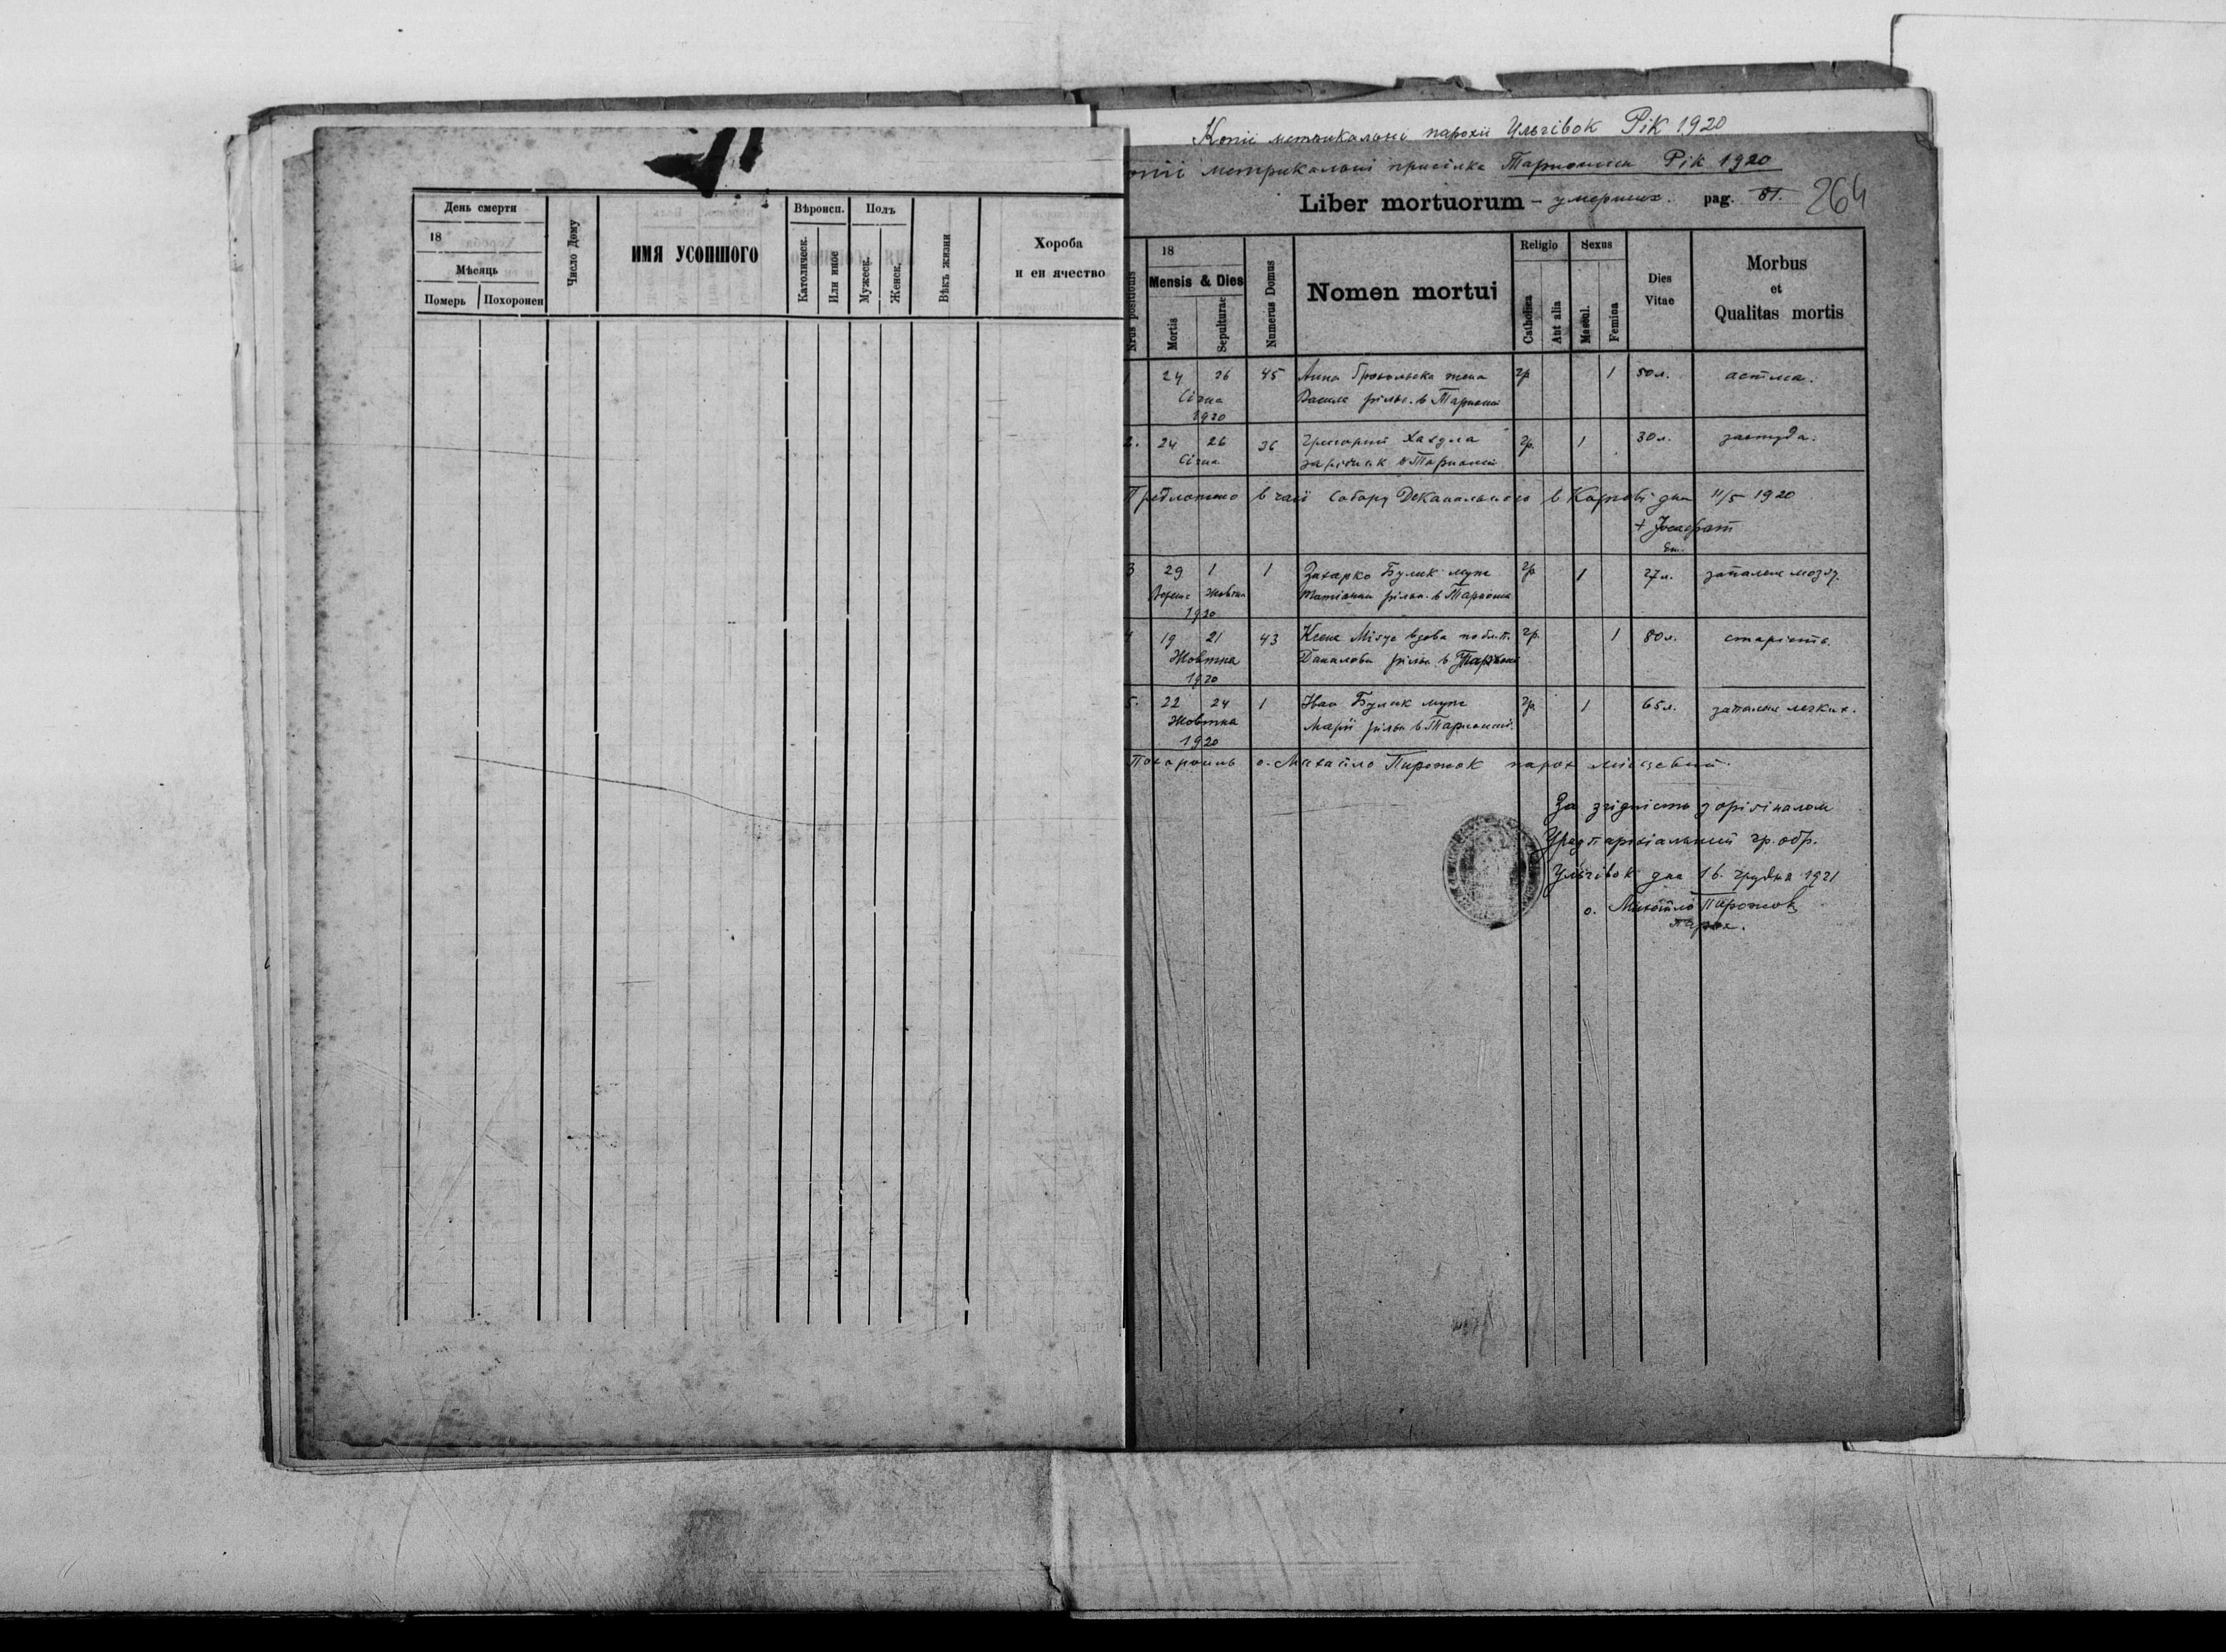 День смерти
18
Мѣсяць
Померъ
Похоронен
Число Дому
ИМЯ УСОПШОГО
Вѣроисп.
Католическ.
Или иное
Полъ
Мужеск.
Женск.
Вѣкъ жизни
Хороба
и еи ячество
Копії метрикальні парохії Ульгівок Рік 1920
метрикальні присілка Рік 1920
Liber mortuorum – умерших. pag. 81. 264
Nrus positionis
18
Mensis & Dies
Mortis
Sepulturae
Numerus Domus
Nomen mortui
Religio
Catholica
Aut alia
Sexus
Mascul.
Femina
Dies
Vitae
Morbus
et
Qualitas mortis
1 24 26 45 Анна жена гр 1 50 л. астма.
Січня Василя рільн. в
1920
2. 24 26 36 Григорий гр. 1 30 л. застуда.
Січня зарібник в
Предложено в часі Собору Деканального в Карові дня 11/5 1920
+ Йосафат
Еп.
3 29 1 1 Захарко Булик муж гр 1 27 л. запалення мозгу.
Жовтня рільн. в
1920
4 19 21 43 вдова по бл. п. гр. 1 80 л. старість.
Жовтня рільн. в
1920
5. 22 24 1 Іван Булик муж гр. 1 65 л. запалення легких.
Жовтня Марії рільн в
1920
Похоронив о. Михайло Пирожок парох місцевий.
За згідність з орігіналом
Уряд парохіальний гр. обр.
Ульгівок дня 16. грудня 1921
о. Михайло Пирожок
парох.